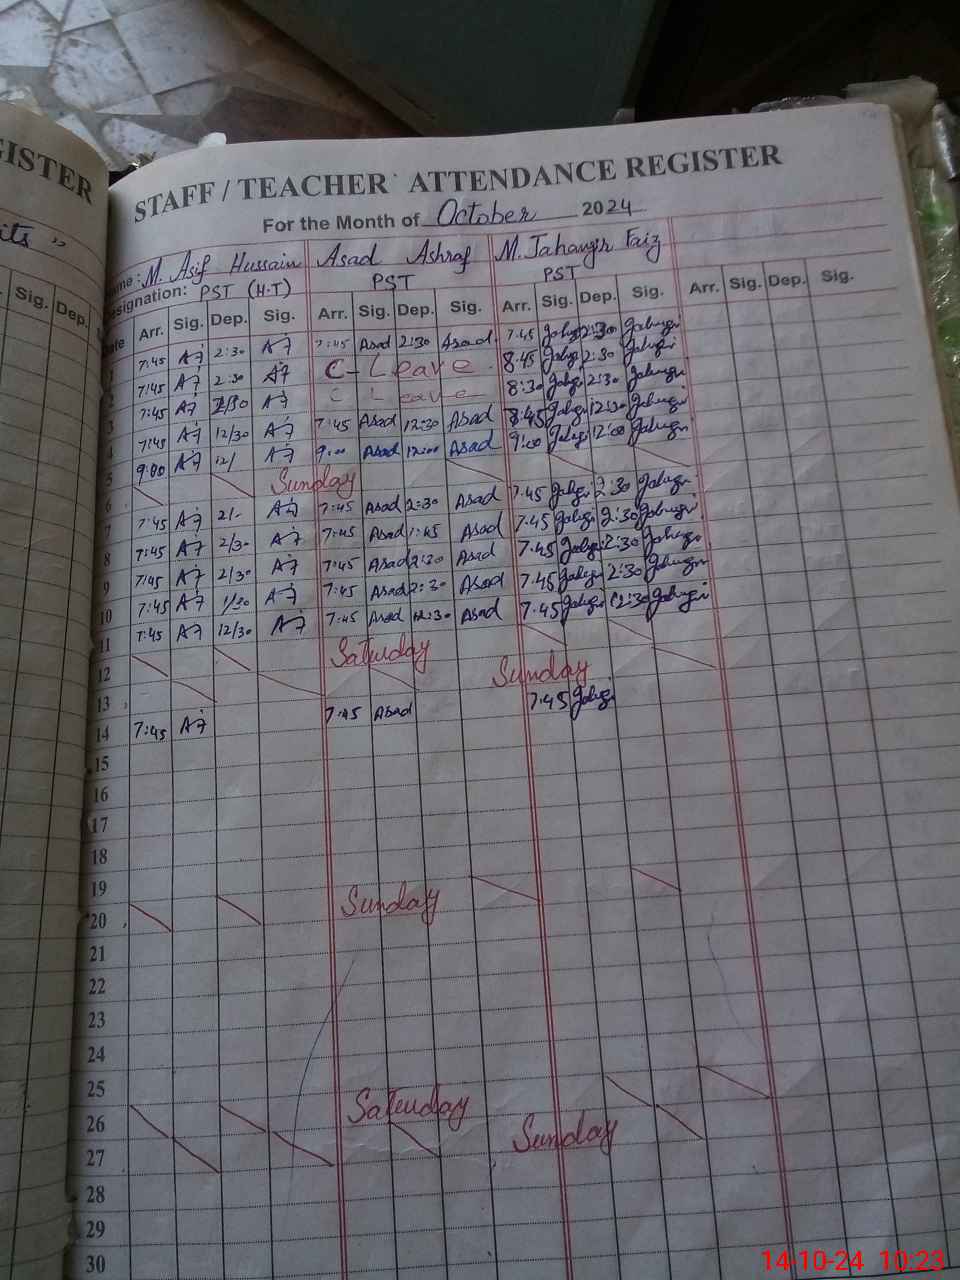 GISTER
STAFF / TEACHER ATTENDANCE REGISTER
For the Month of October 2024
Name: M. Asif Hussain Asad Ashraf M. Jahangir Faiz
Designation: PST (H.T) PST PST
Sig. Dep. Date Arr. Sig. Dep. Sig. Arr. Sig. Dep. Sig. Arr. Sig. Dep. Sig. Arr. Sig. Dep. Sig.
7:45 A7 2:30 A7 7:45 Asad 2:30 Asad 7:45 2:30
7:45 A7 2:30 A7 C-Leave 8:45 2:30
3 7:45 A7 2/30 A7 C Leave 8:30 2:30
4 7:45 A7 12/30 A7 7:45 Asad 12:30 Asad 8:45 12:30
5 9:00 A7 12/ A7 9:00 Asad 12:00 Asad 9:00 12:00
6 Sunday
7 7:45 A7 2/- A7 7:45 Asad 2:30 Asad 7:45 2:30
8 7:45 A7 2/30 A7 7:45 Asad 1:45 Asad 7:45 2:30
9 7:45 A7 2/30 A7 7:45 Asad 2:30 Asad 7:45 2:30
10 7:45 A7 1/30 A7 7:45 Asad 2:30 Asad 7:45 2:30
11 7:45 A7 12/30 A7 7:45 Asad 12:30 Asad 7:45 12:30
12 Saturday
13 Sunday
14 7:45 A7 7:45 Asad 7:45
15
16
17
18
19
20 Sunday
21
22
23
24
25
26 Saturday
27 Sunday
28
29
30
14-10-24 10:23